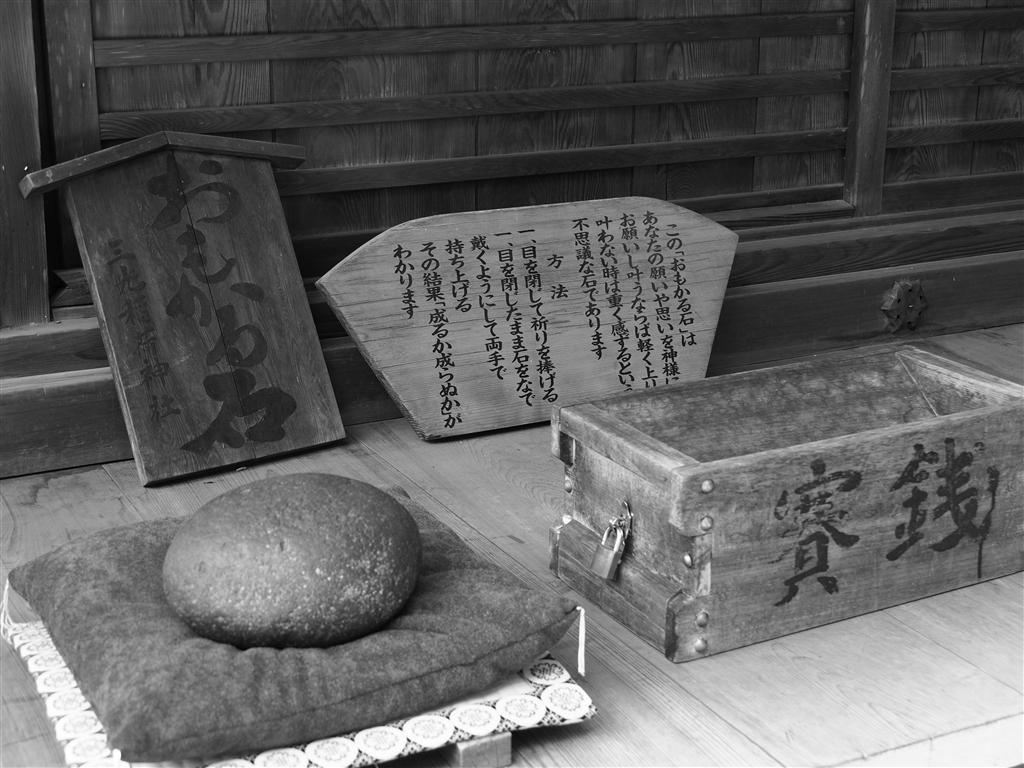 おもかる石
三光稲荷神社
この「おもかる石」は
あなたの願いや思いを神様に
お願いし叶うならば軽く上り
叶わない時は重く感ずるという
不思議な石であります
方法
一、目を閉じて祈りを捧げる
一、目を閉じたまま石をなで
戴くようにして両手で
持ち上げる
その結果「成るか成らぬか」が
わかります
賽銭